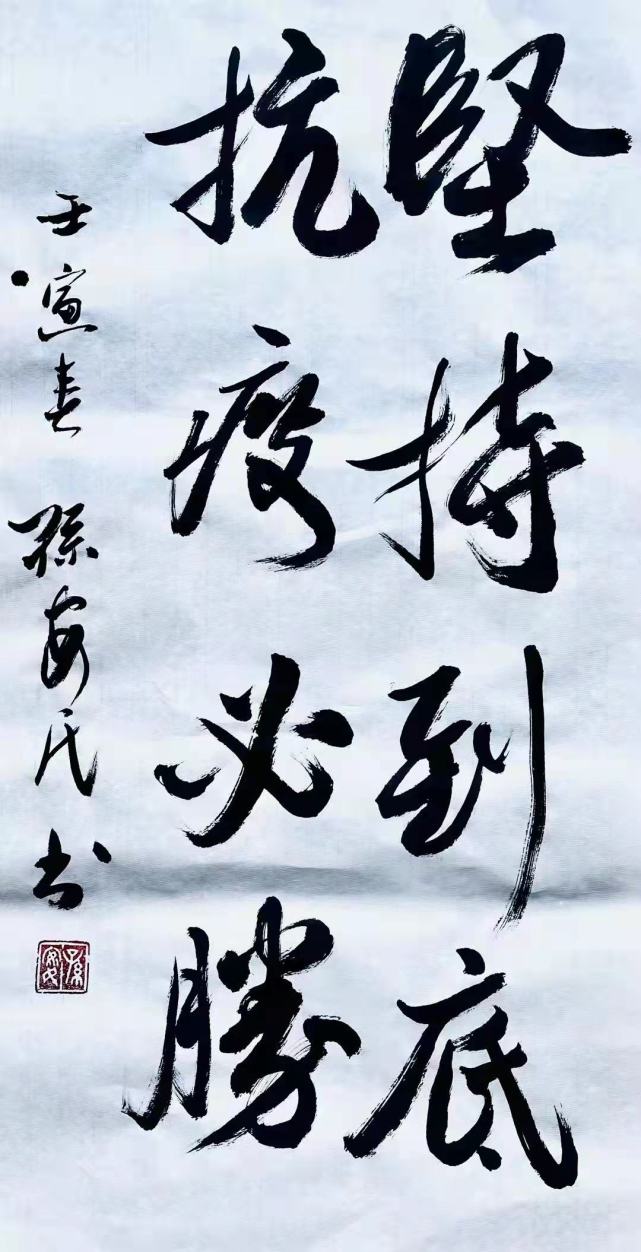 堅持到底
抗疫必勝
壬寅春 孫安民书
孫安